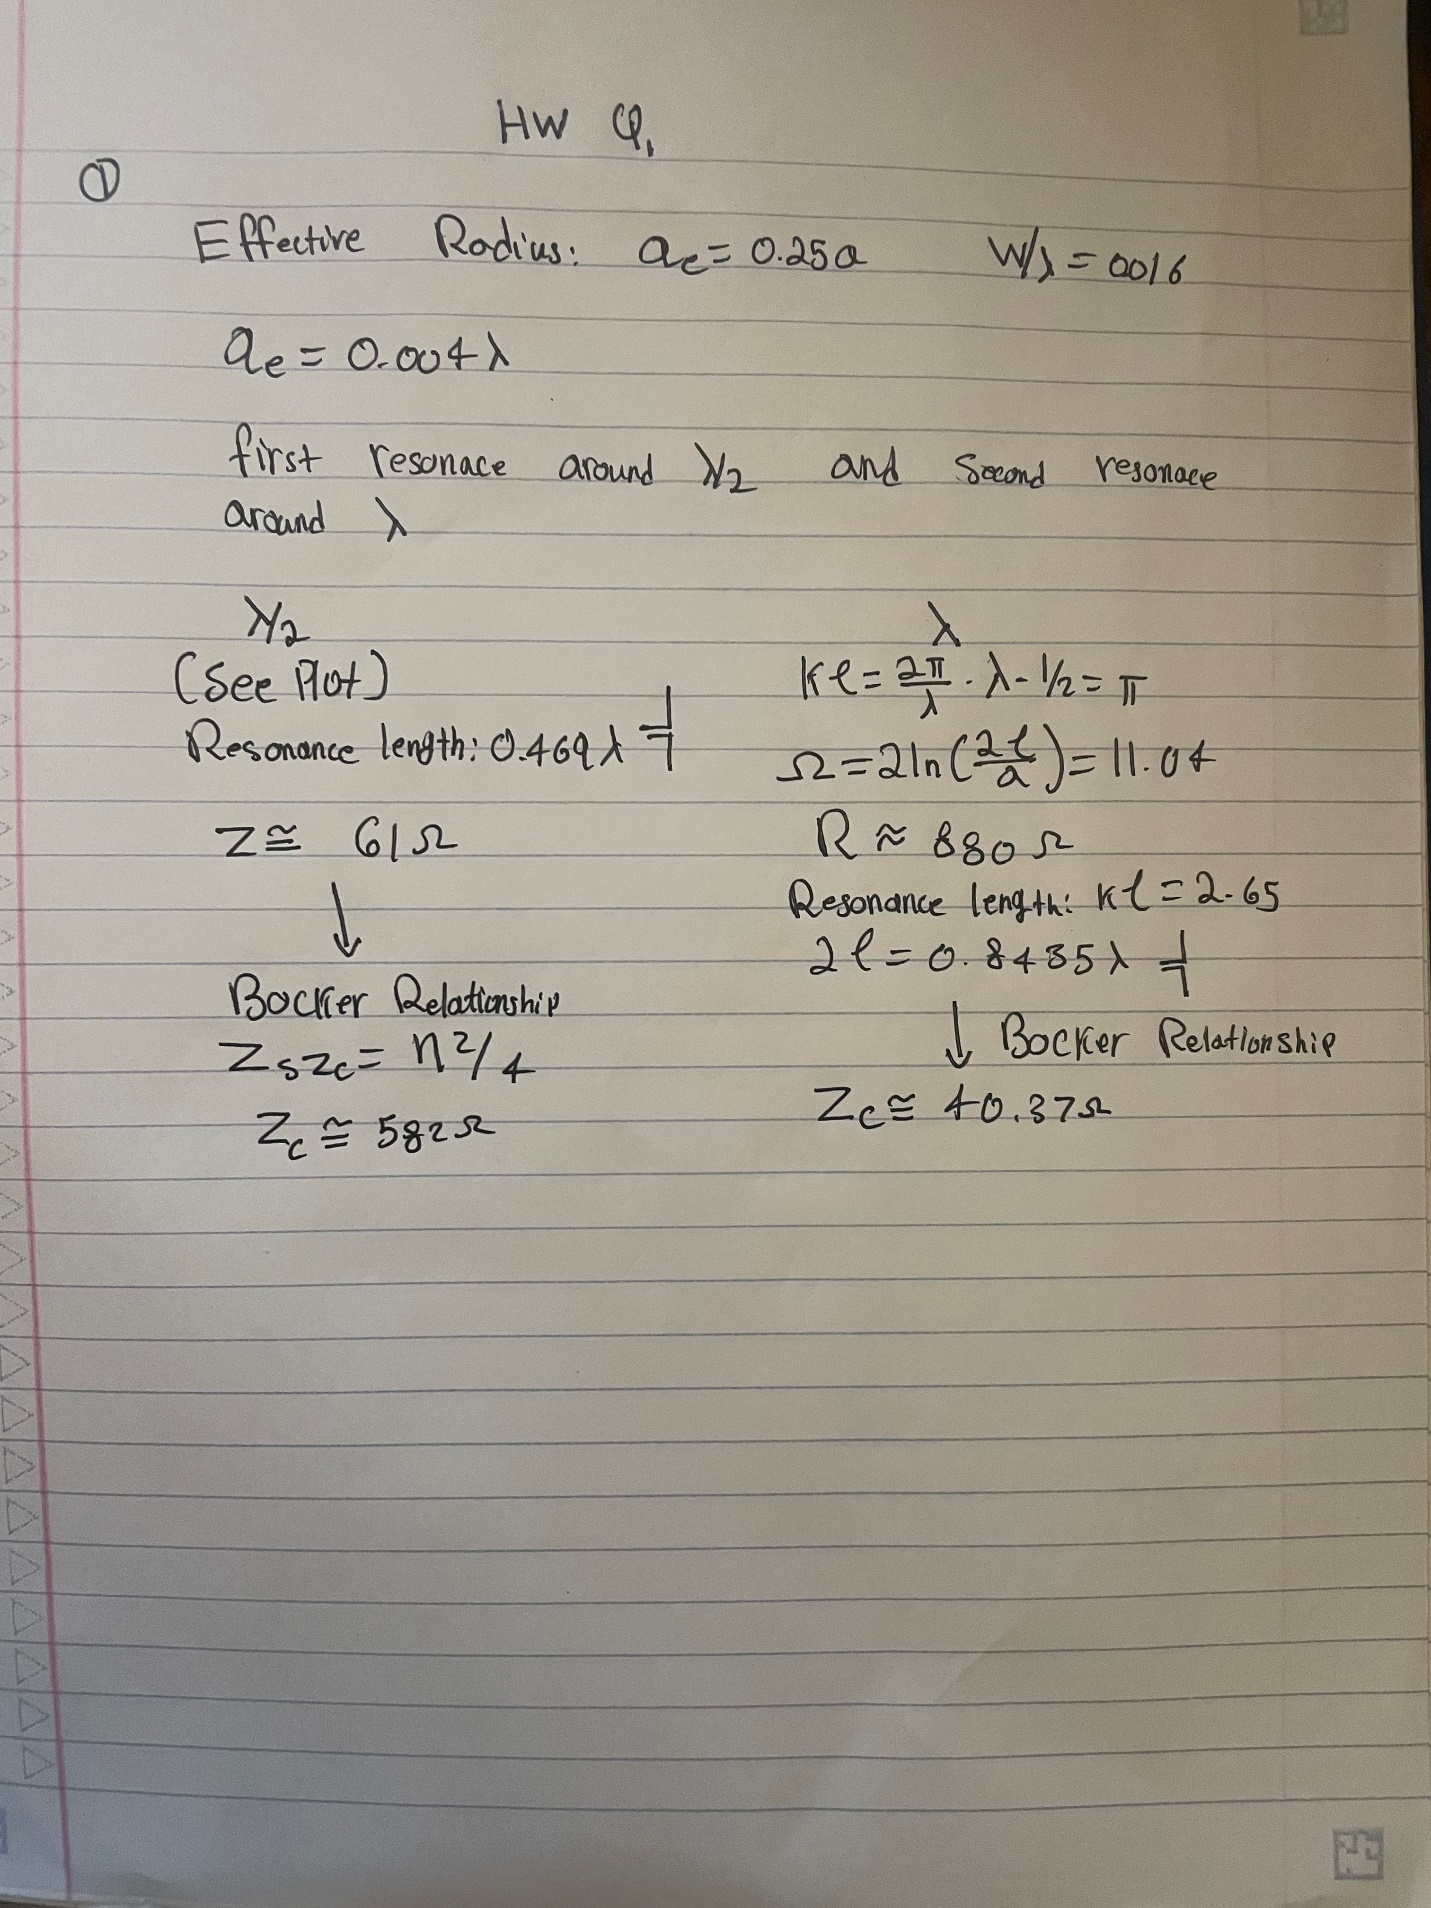 HW Q1
①
Effective Radius: ae = 0.25a W/λ = 0016
ae = 0.004λ
first resonace around λ/2 and Second resonace
around λ
λ/2
(See Plot)
Resonance length: 0.469λ
Z ≅ 61Ω
↓
Bocker Relationship
ZsZc = η²/4
Zc ≅ 582Ω
λ
kℓ = 2π/λ · λ · 1/2 = π
Ω = 2ln(2ℓ/a) = 11.04
R ≈ 880Ω
Resonance length: kℓ = 2.65
2ℓ = 0.8435λ
↓ Bocker Relationship
Zc ≅ 40.37Ω